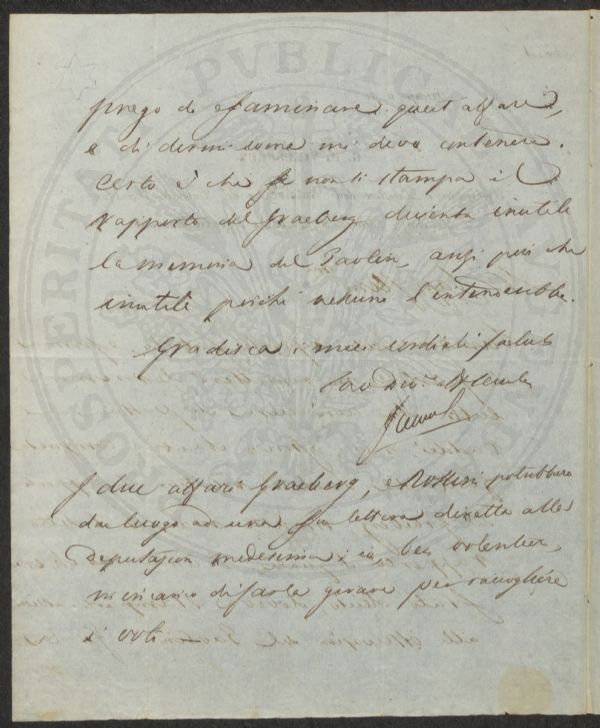 prego di esaminare quest'affare,
e di dirmi come mi devo contenere.
Certo è che se non si stampa il
rapporto del Graeberg diventa inutile
la memoria del Paolin, anzi più che
inutile perché nessuno l'intenderebbe.
Gradisca i miei cordiali saluti
Suo Dev.
I due affari Graeberg, e Rossini potrebbero
dar luogo ad una sua lettera diretta alla
Deputazion medesima: io ben volentier
m'incarico di farla girare per raccogliere
i voti